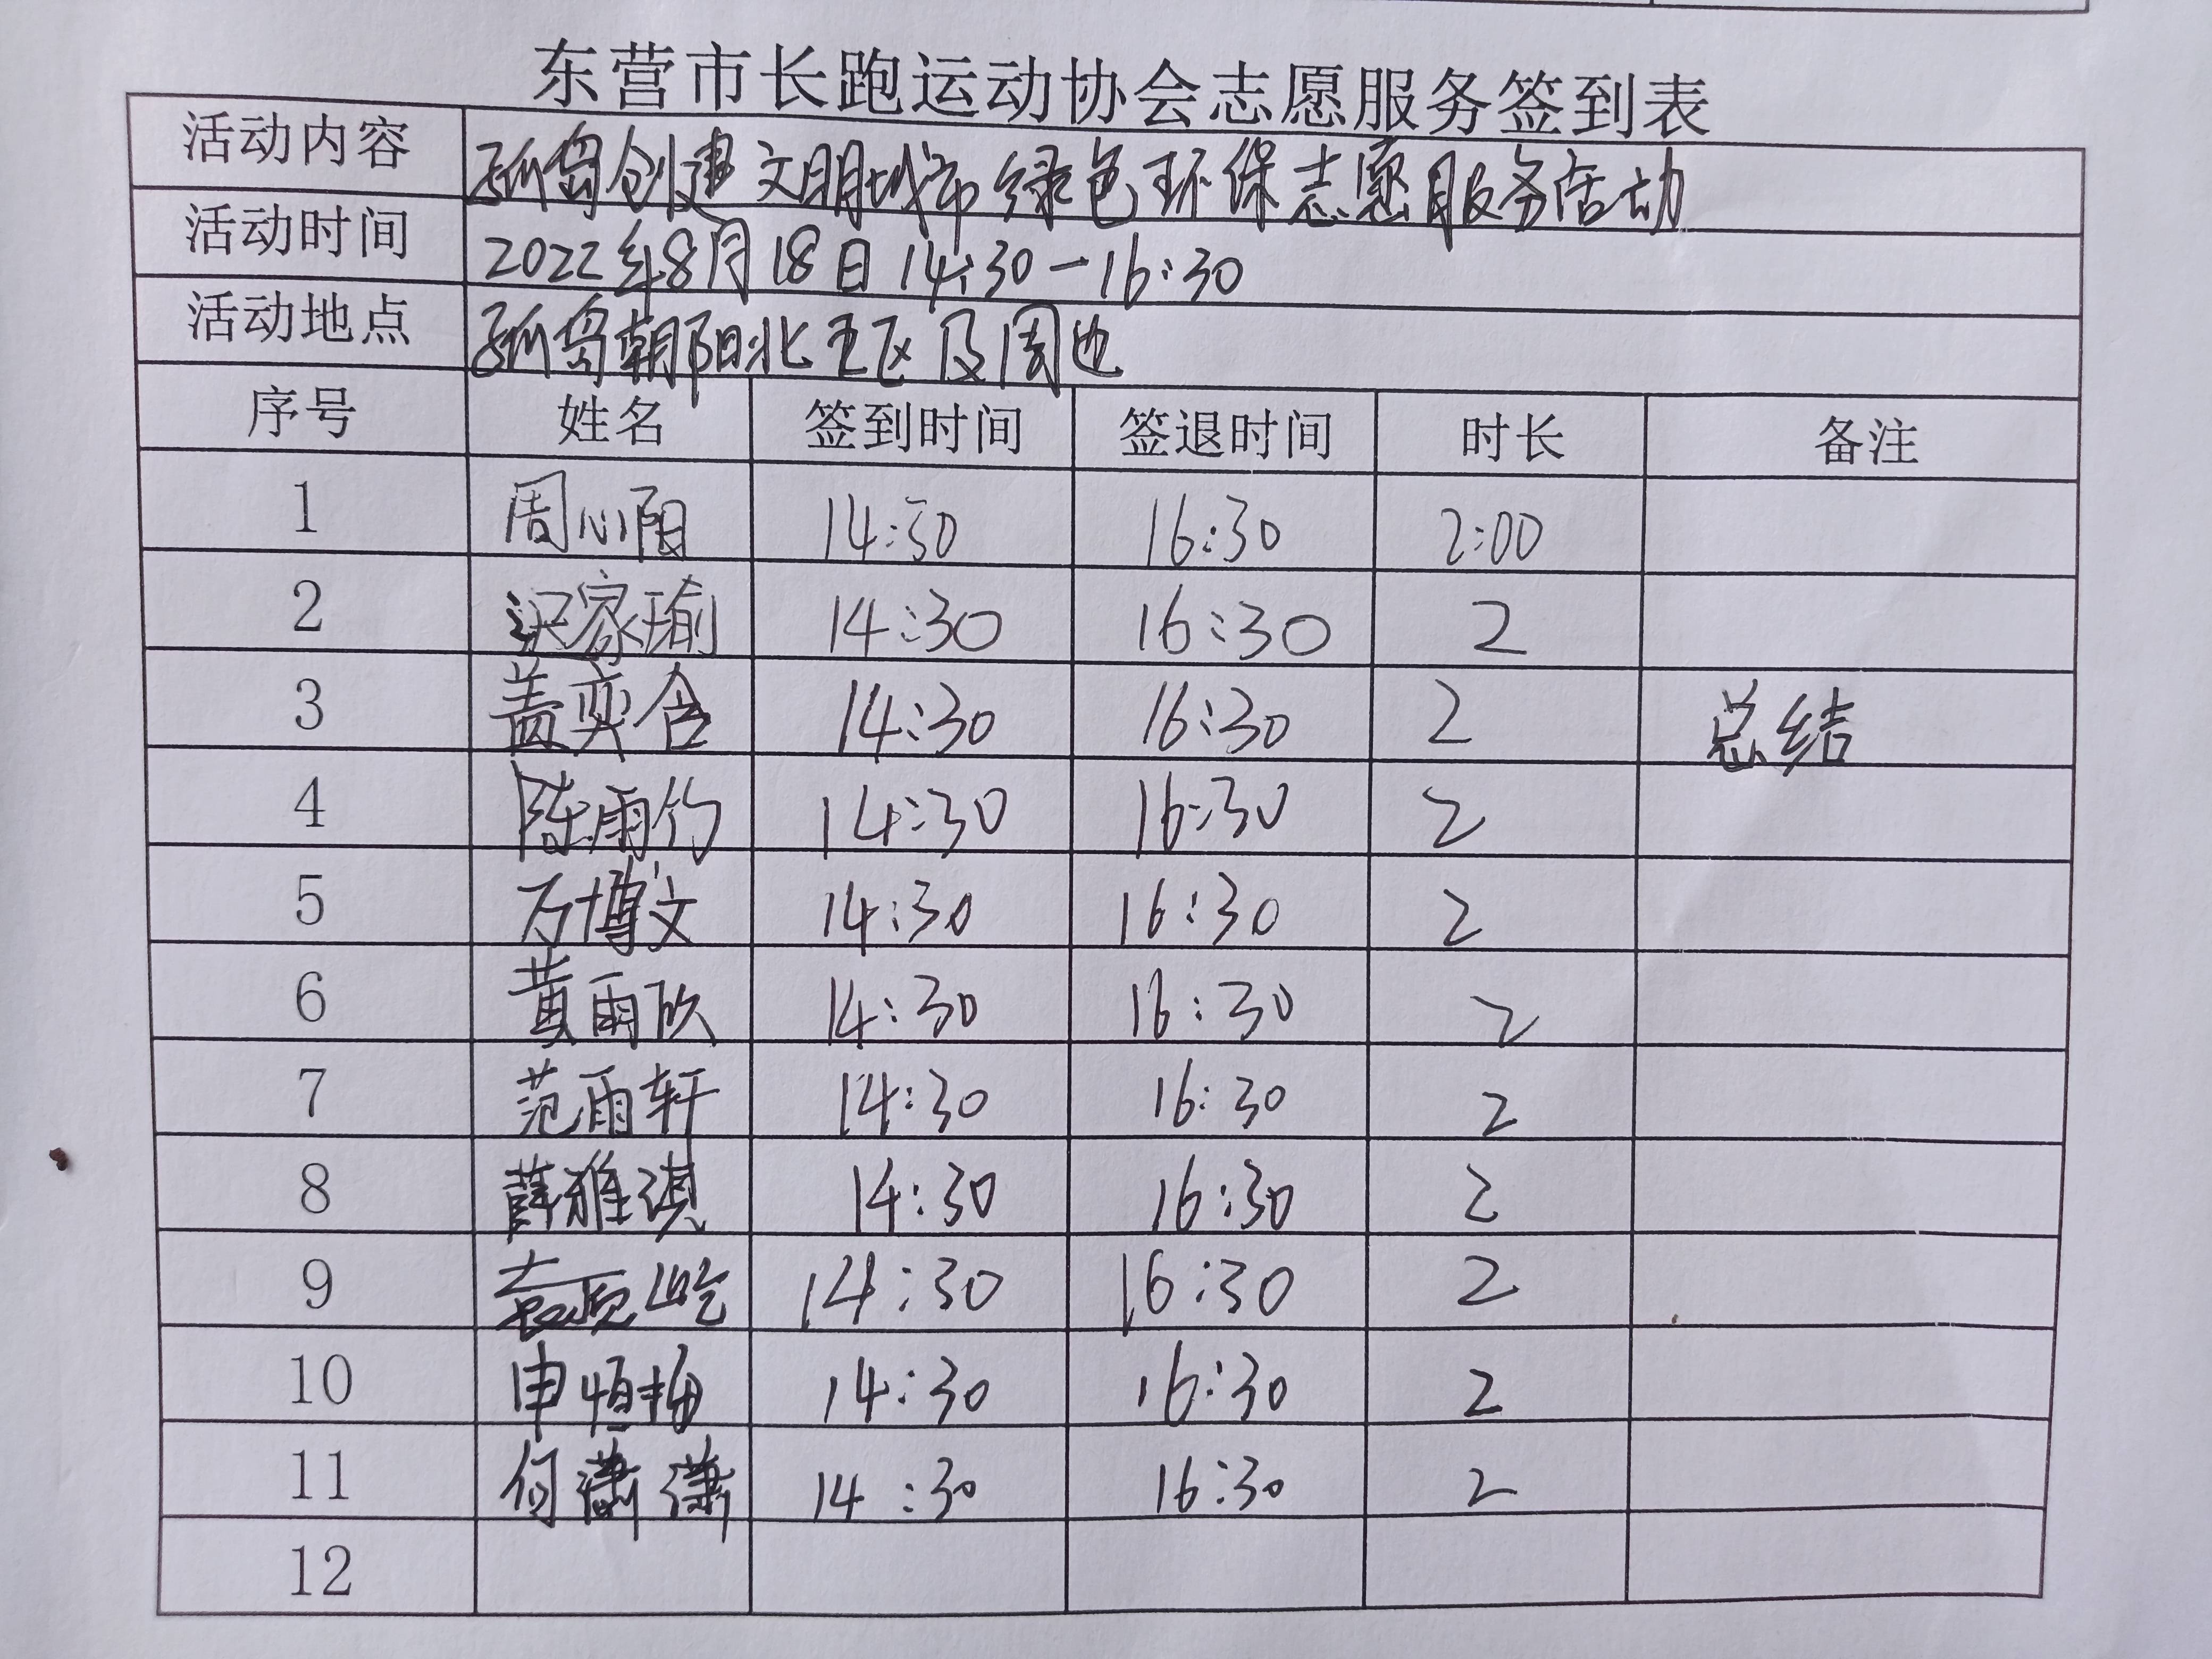 东营市长跑运动协会志愿服务签到表
活动内容 孤岛创建文明城市绿色环保志愿服务活动
活动时间 2022年8月18日14:30一16:30
活动地点 孤岛朝阳北三区及周边
序号 姓名 签到时间 签退时间 时长 备注
1 周心阳 14:30 16:30 2:00
2 梁家瑜 14:30 16:30 2
3 盖奕含 14:30 16:30 2 总结
4 陈雨竹 14:30 16:30 2
5 万博文 14:30 16:30 2
6 黄雨欣 14:30 16:30 2
7 范雨轩 14:30 16:30 2
8 薛雅淇 14:30 16:30 2
9 14:30 16:30 2
10 申恒梅 14:30 16:30 2
11 何潇潇 14:30 16:30 2
12